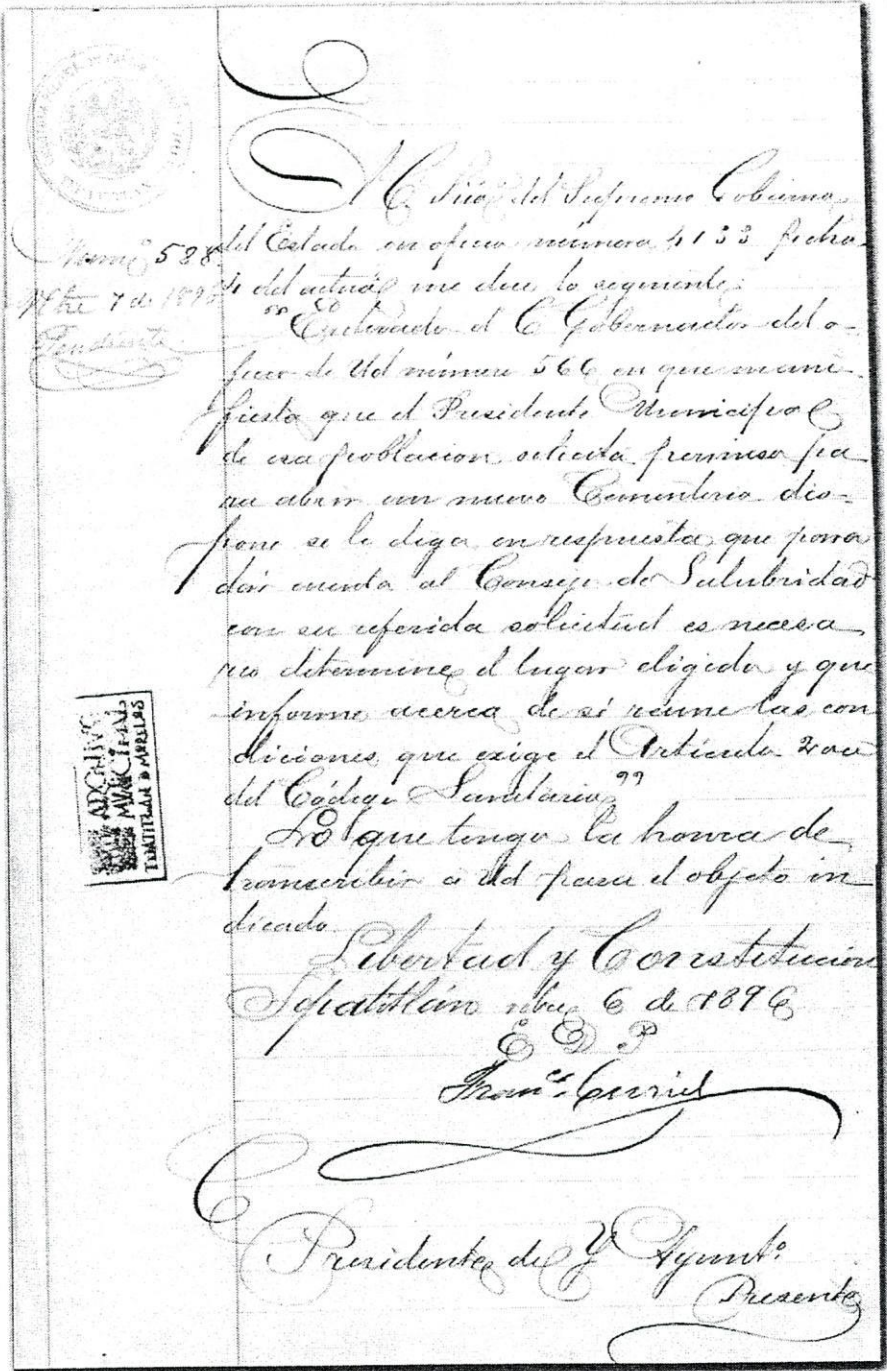 Núm. 588
9bre 7 de 1896
Pendiente.
El C. Srio. del Supremo Gobierno
del Estado en oficio número 4133 fecha
4 del actual me dice lo siguiente:
"Enterado el C Gobernador del o-
ficio de Ud número 566 en que mani
fiesta que el Presidente Municipal
de esa poblacion solicita permiso pa
ra abrir un nuevo Cementerio dis-
pone se le diga en respuesta que para
dar cuenta al Consejo de Salubridad
con su referida solicitud es necesa
rio determine el lugar eligido y que
informe acerca de si reune las con
diciones que exige el Articulo
del Código Sanitario"
Lo que tengo la honra de
transcribir a Ud para el objeto in
dicado.
Libertad y Constitución
Tepatitlán nbre 6 de 1896
E D P
Franco. Curiel
C
Presidente del Y Ayunto.
Presente
ARCHIVO
MUNICIPAL
TEPATITLAN D MORELOS